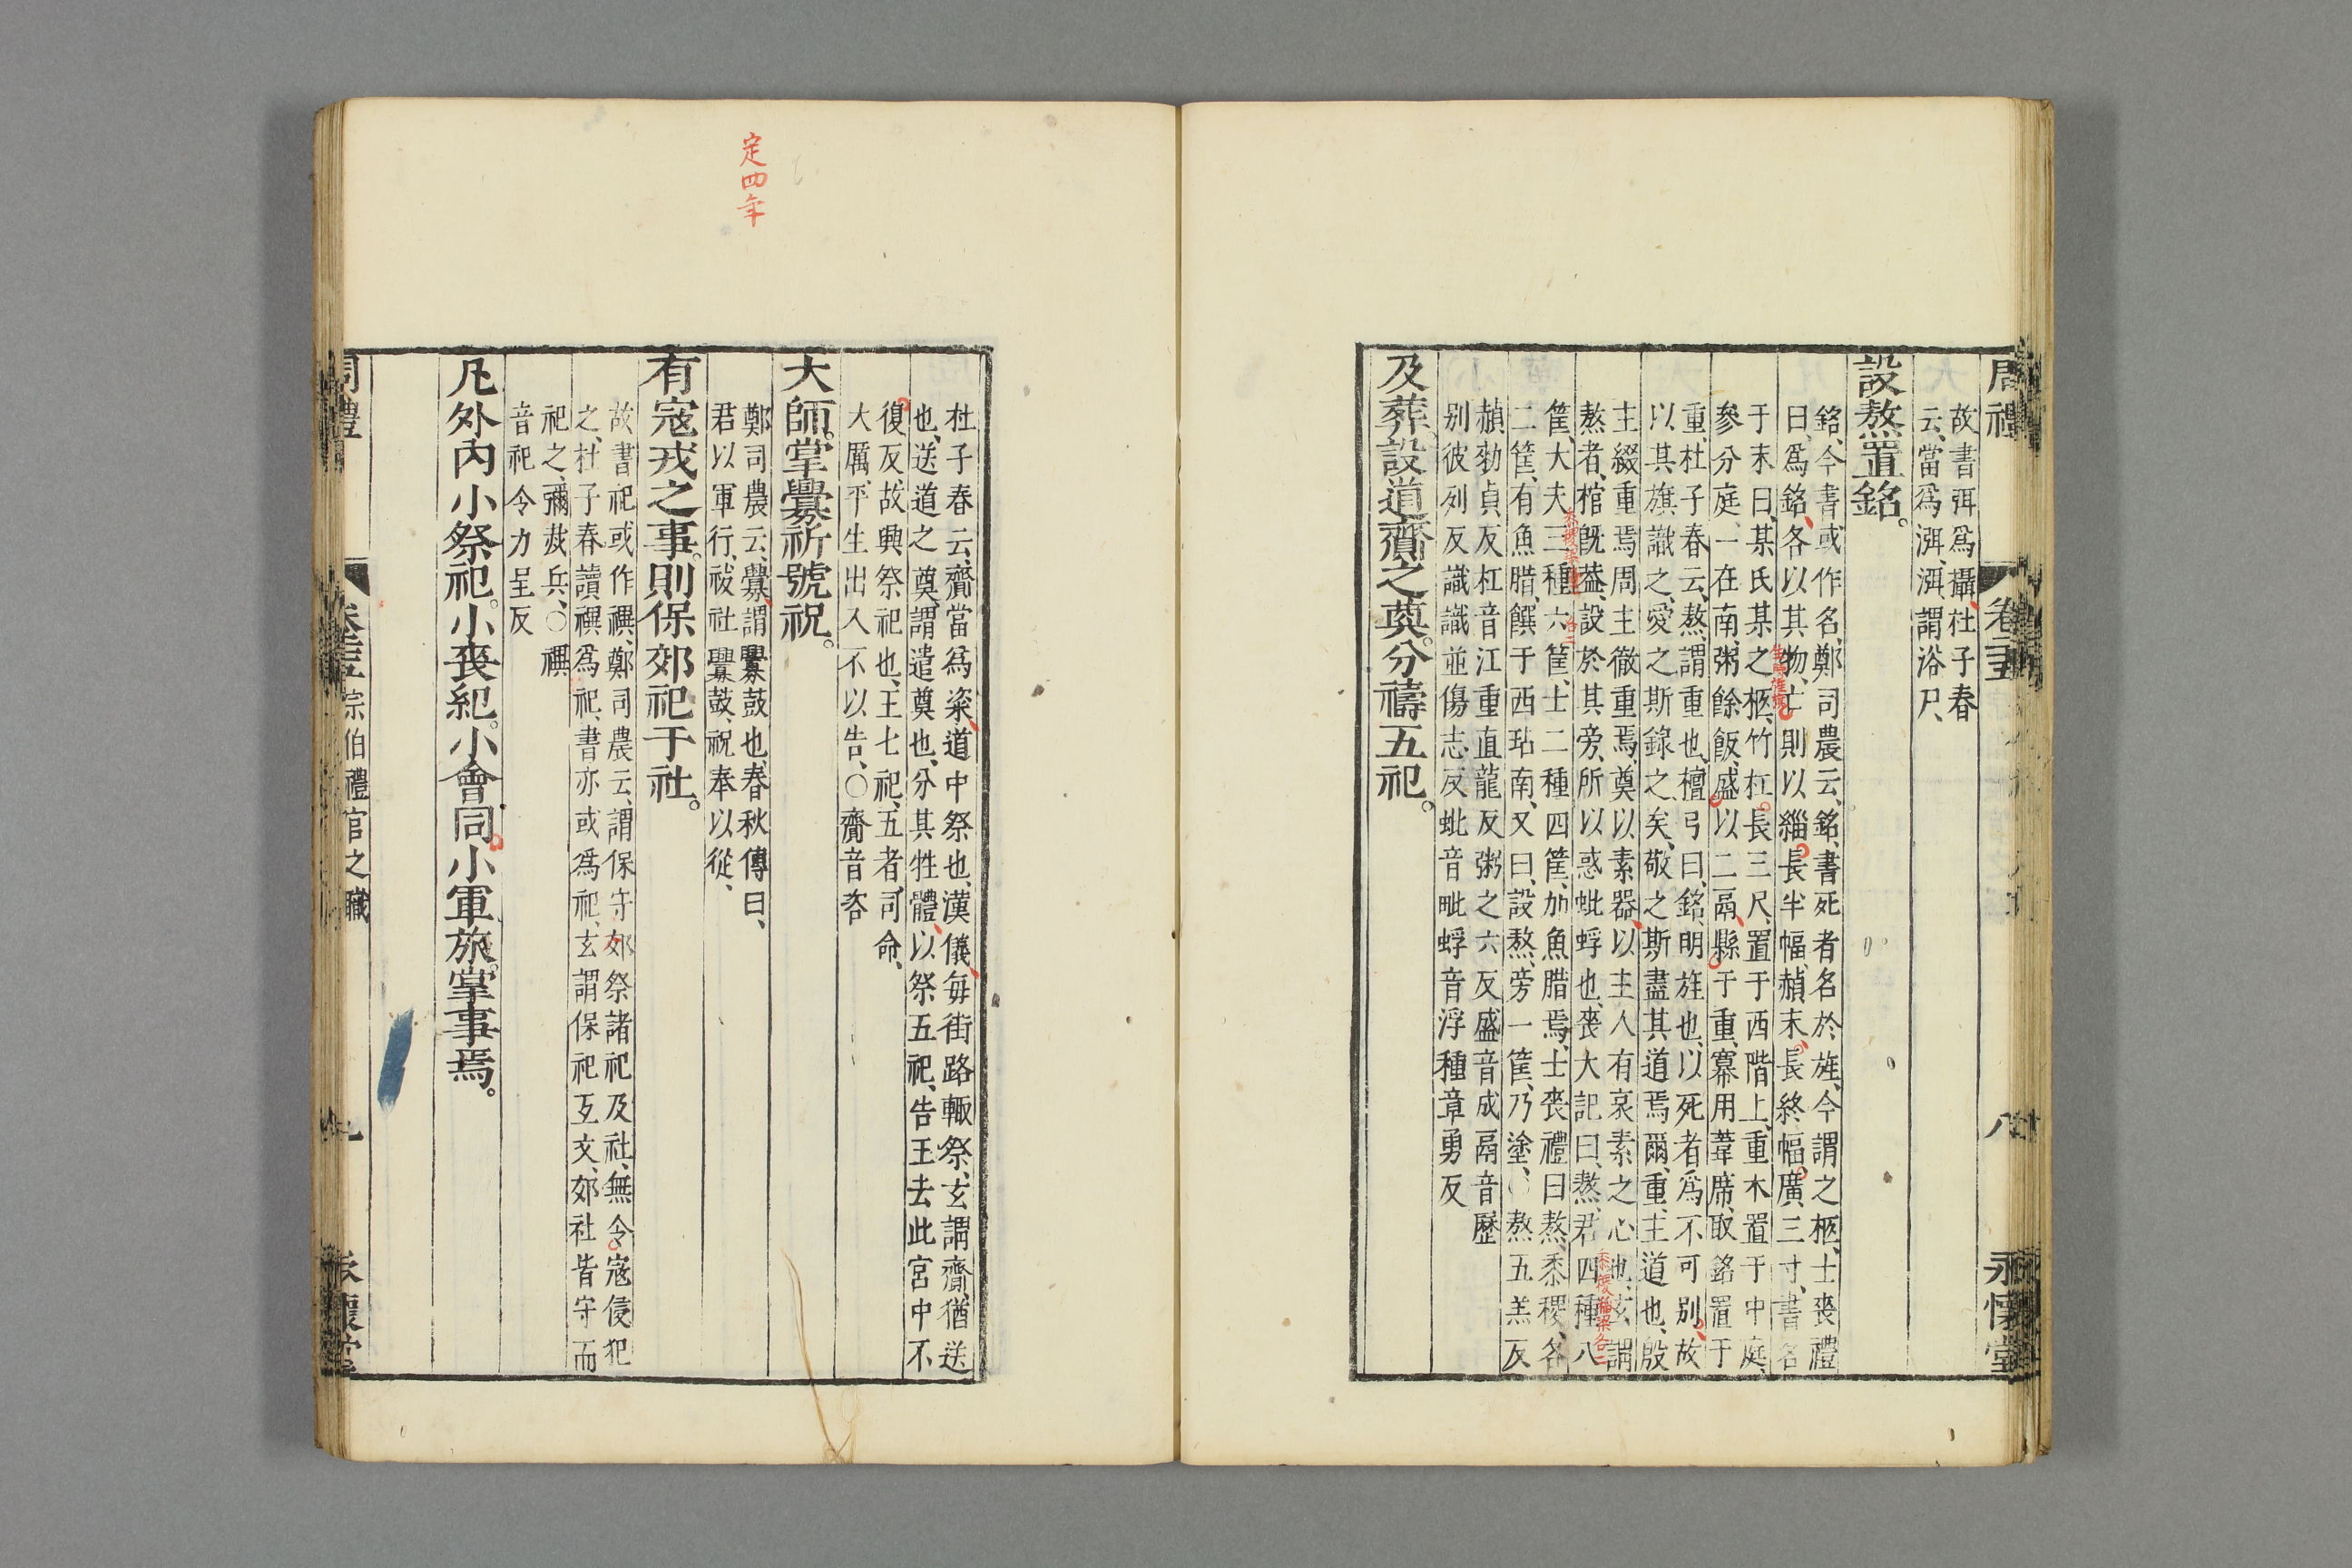 周禮 卷二十五 八 永懷堂
故書弭爲攝、杜子春
云、當爲湄、湄、謂浴尸、
設熬置銘。
銘、今書或作名、鄭司農云、銘、書死者名於旌、今謂之柩、士喪禮
曰、爲銘、各以其物、亡則以緇、長半幅、赬末、長終幅、廣三寸、書名
于末曰、某氏某之柩、竹杠長三尺、置于西階上、重木置于中庭、
參分庭、一在南、粥餘飯、盛以二鬲、縣于重、冪用葦席、取銘置于
重、杜子春云、熬、謂重也、檀弓曰、銘、明旌也、以死者爲不可别、故
以其旗識之、愛之斯錄之矣、敬之斯盡其道焉爾、重、主道也、殷
主綴重焉、周主徹重焉、奠以素器、以主人有哀素之心也、玄謂
熬者、棺旣葢、設於其旁、所以惑蚍蜉也、喪大記曰、熬、君四種八
筐、大夫三種六筐、士二種四筐、加魚腊焉、士喪禮曰、熬、黍稷、各
二筐、有魚腊、饌于西坫南、又曰、設熬、旁一筐、乃塗、○熬五羔反
赬勑貞反杠音江重直龍反粥之六反盛音成鬲音歷
别彼列反識識並傷志反蚍音毗蜉音浮種章勇反
及葬、設道齎之奠。分禱五祀。
杜子春云、齎當爲粢、道中祭也、漢儀、每街路輙祭、玄謂齎、猶送
也、送道之奠、謂遣奠也、分其牲體、以祭五祀、告王去此宮中不
復反、故興祭祀也、王七祀、五者、司命、
大厲、平生出入不以告、○齎音咨
大師。掌釁祈號祝。
定四年
鄭司農云、釁、謂釁鼓也、春秋傳曰、
君以軍行、祓社釁鼓、祝奉以從、
有寇戎之事。則保郊祀于社。
故書祀或作禩、鄭司農云、謂保守郊祭諸祀及社、無令寇侵犯
之、杜子春讀禩爲祀、書亦或爲祀、玄謂保祀互文、郊社皆守而
祀之、彌烖兵、○禩
音祀令力呈反
凡外内小祭祀。小喪紀。小會同。小軍旅。掌事焉。
周禮 卷二十五 宗伯禮官之職 九 永懷堂